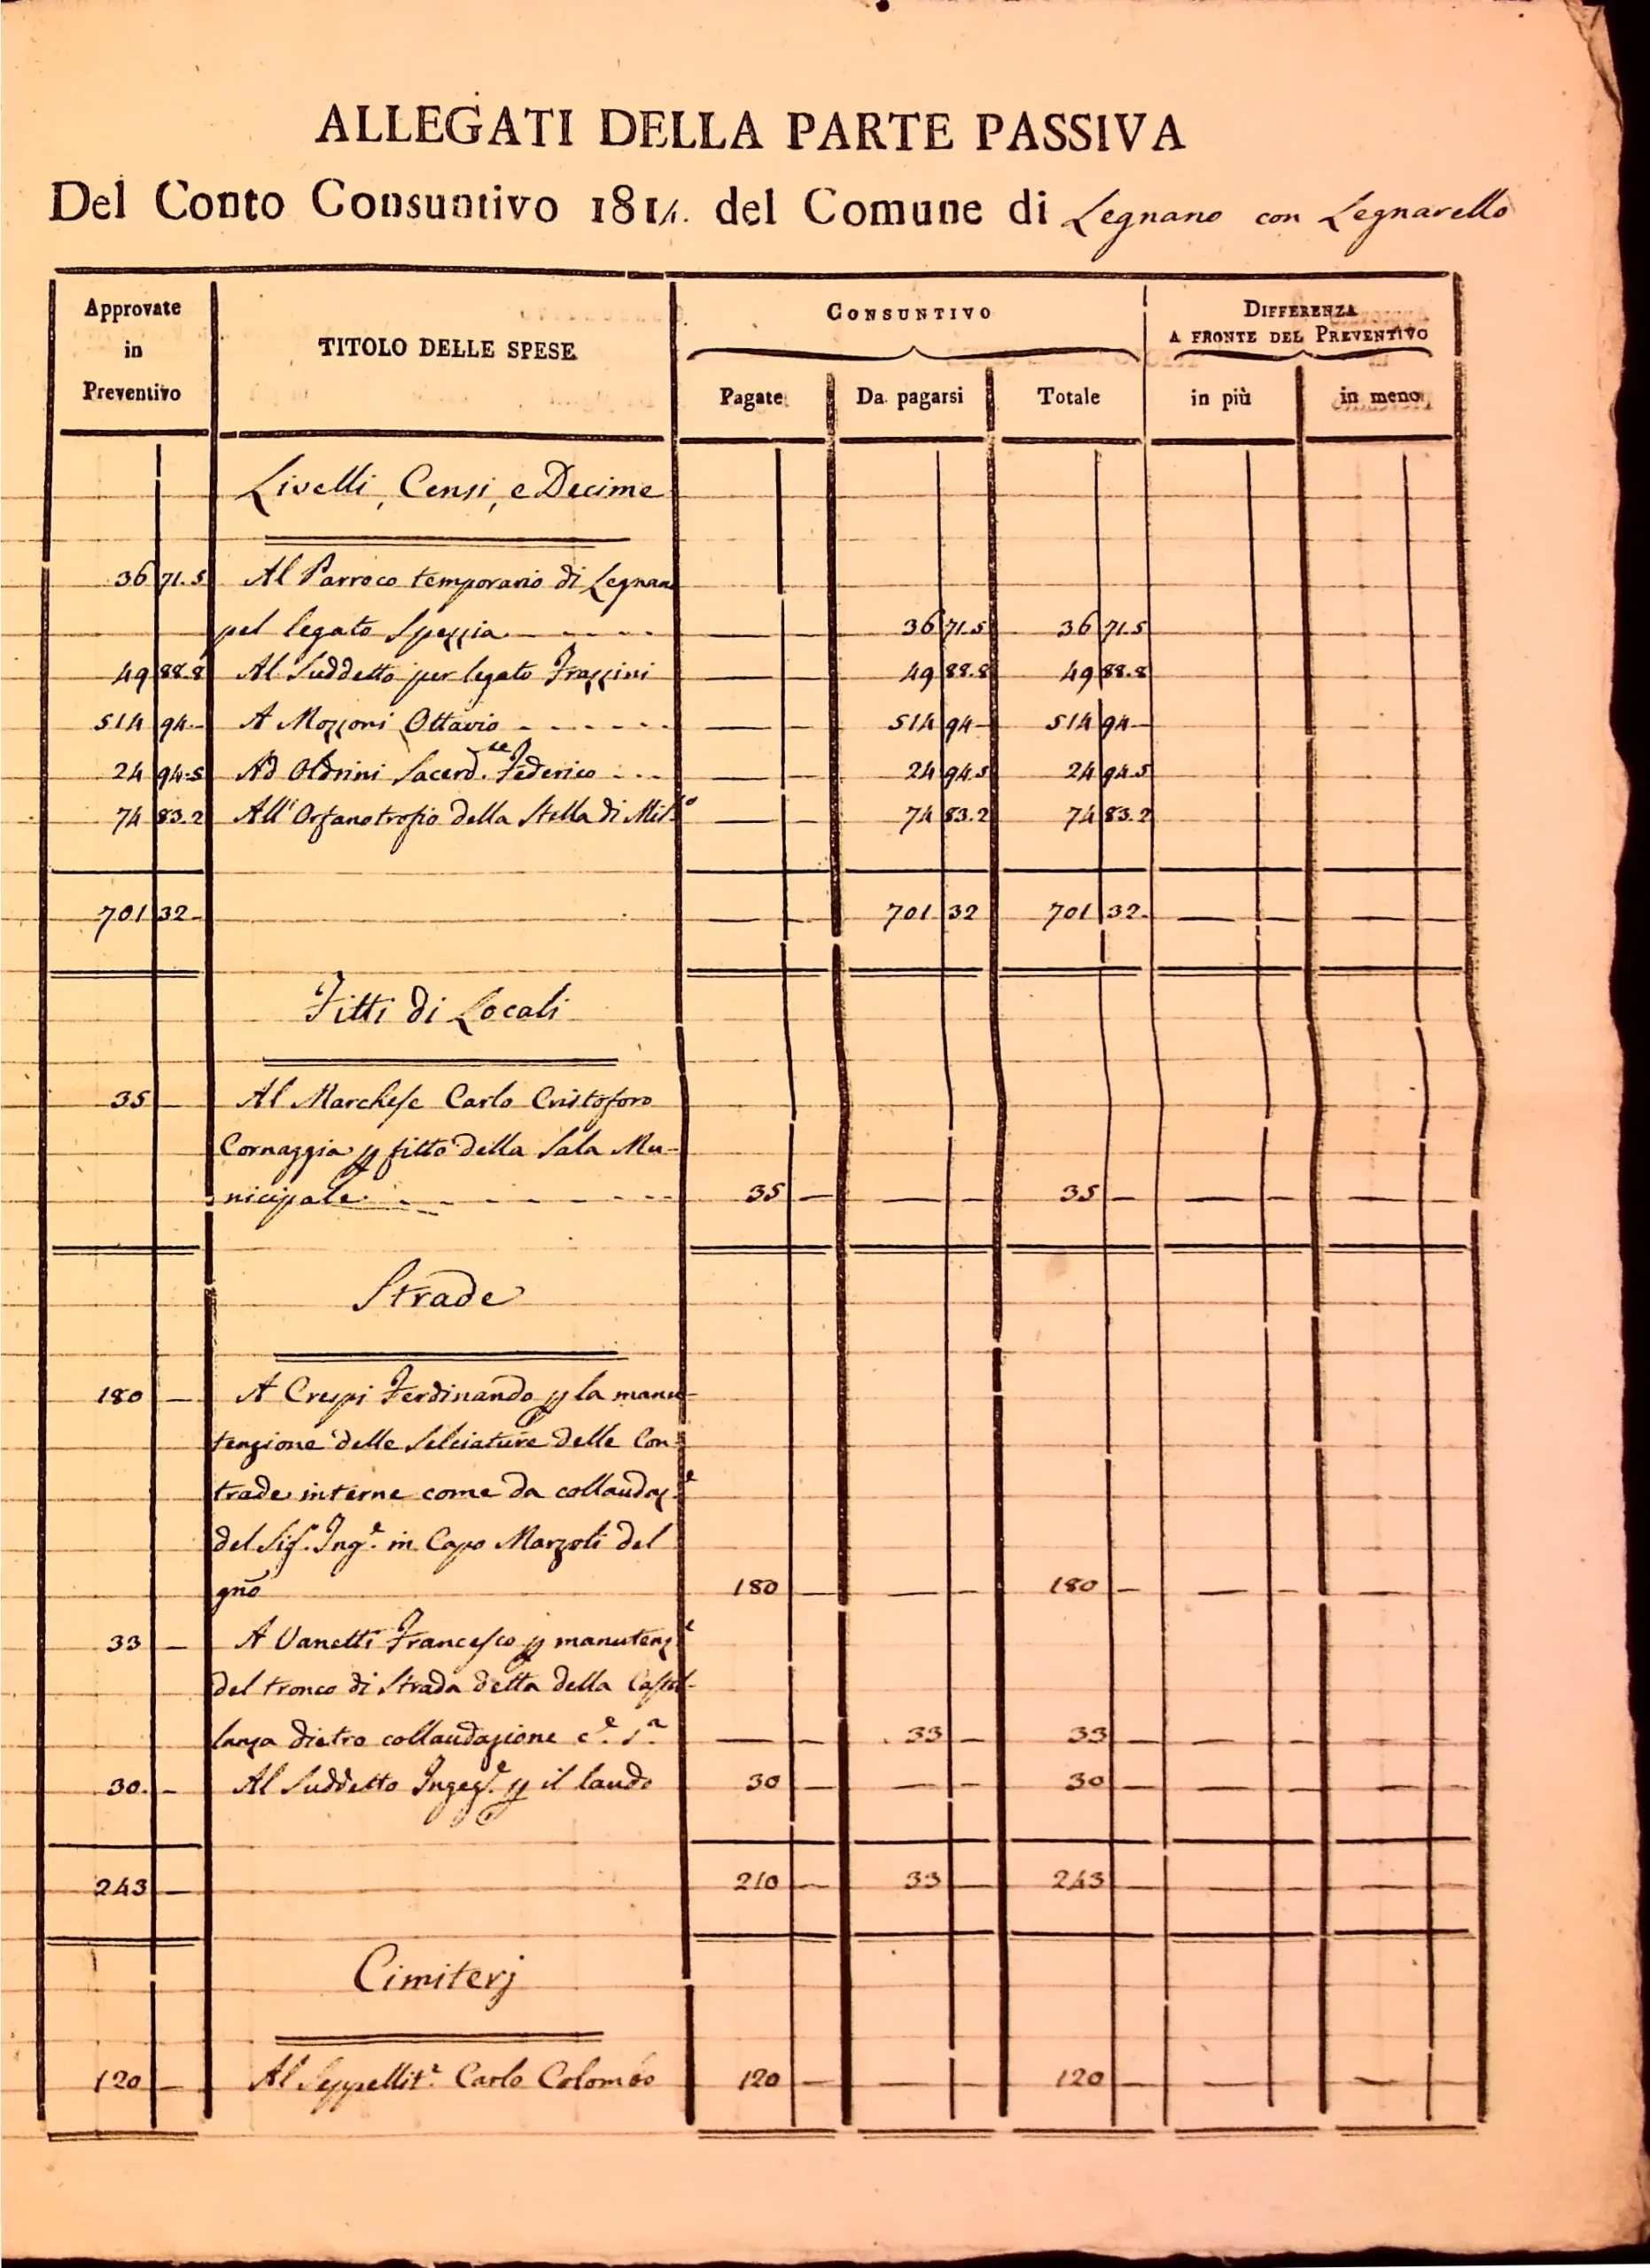 ALLEGATI DELLA PARTE PASSIVA
Del Conto Consuntivo 1814. del Comune di Legnano con Legnarello
Approvate in Preventivo
TITOLO DELLE SPESE
CONSUNTIVO
DIFFERENZA A FRONTE DEL PREVENTIVO
Pagate Da pagarsi Totale in più in meno
Livelli, Censi, e Decime
36 71.5 Al Parroco temporario di Legnano
pel legato Spezzia - - - - — — 36 71.5 36 71.5
49 88.8 Al Suddetto per legato Frazzini — — 49 88.8 49 88.8
514 94 - A Mozzoni Ottavio - - - - - - — — 514 94 - 514 94 -
24 94.5 Ad Oldrini Sacerd.te Federico - - - — — 24 94.5 24 94.5
74 83.2 All' Orfanotrofio della Stella di Mil.o — — 74 83.2 74 83.2
701 32 - — — 701 32 701 32 - — — — —
Fitti di Locali
35 — Al Marchese Carlo Cristoforo
Cornaggia p fitto della Sala Mu-
nicipale - - - - - - - 35 — — — 35 — — — — —
Strade
180 — A Crespi Ferdinando p la manu-
tenzione delle Selciature delle Con-
trade interne come da collaudaz.e
del Sig.r Ing.e in Capo Marzoli del
gno 180 — — — 180 — — — — —
33 — A Vanetti Francesco p manutenz.e
del tronco di Strada detta della Castel-
lanza dietro collaudazione c.e s.a — — 33 — 33 — — — — —
30. — Al Suddetto Ingeg.e p il laudo 30 — — — 30 — — — — —
243 — 210 — 33 — 243 — — — — —
Cimiterj
120 — Al Seppellit.e Carlo Colombo 120 — — — 120 — — — — —